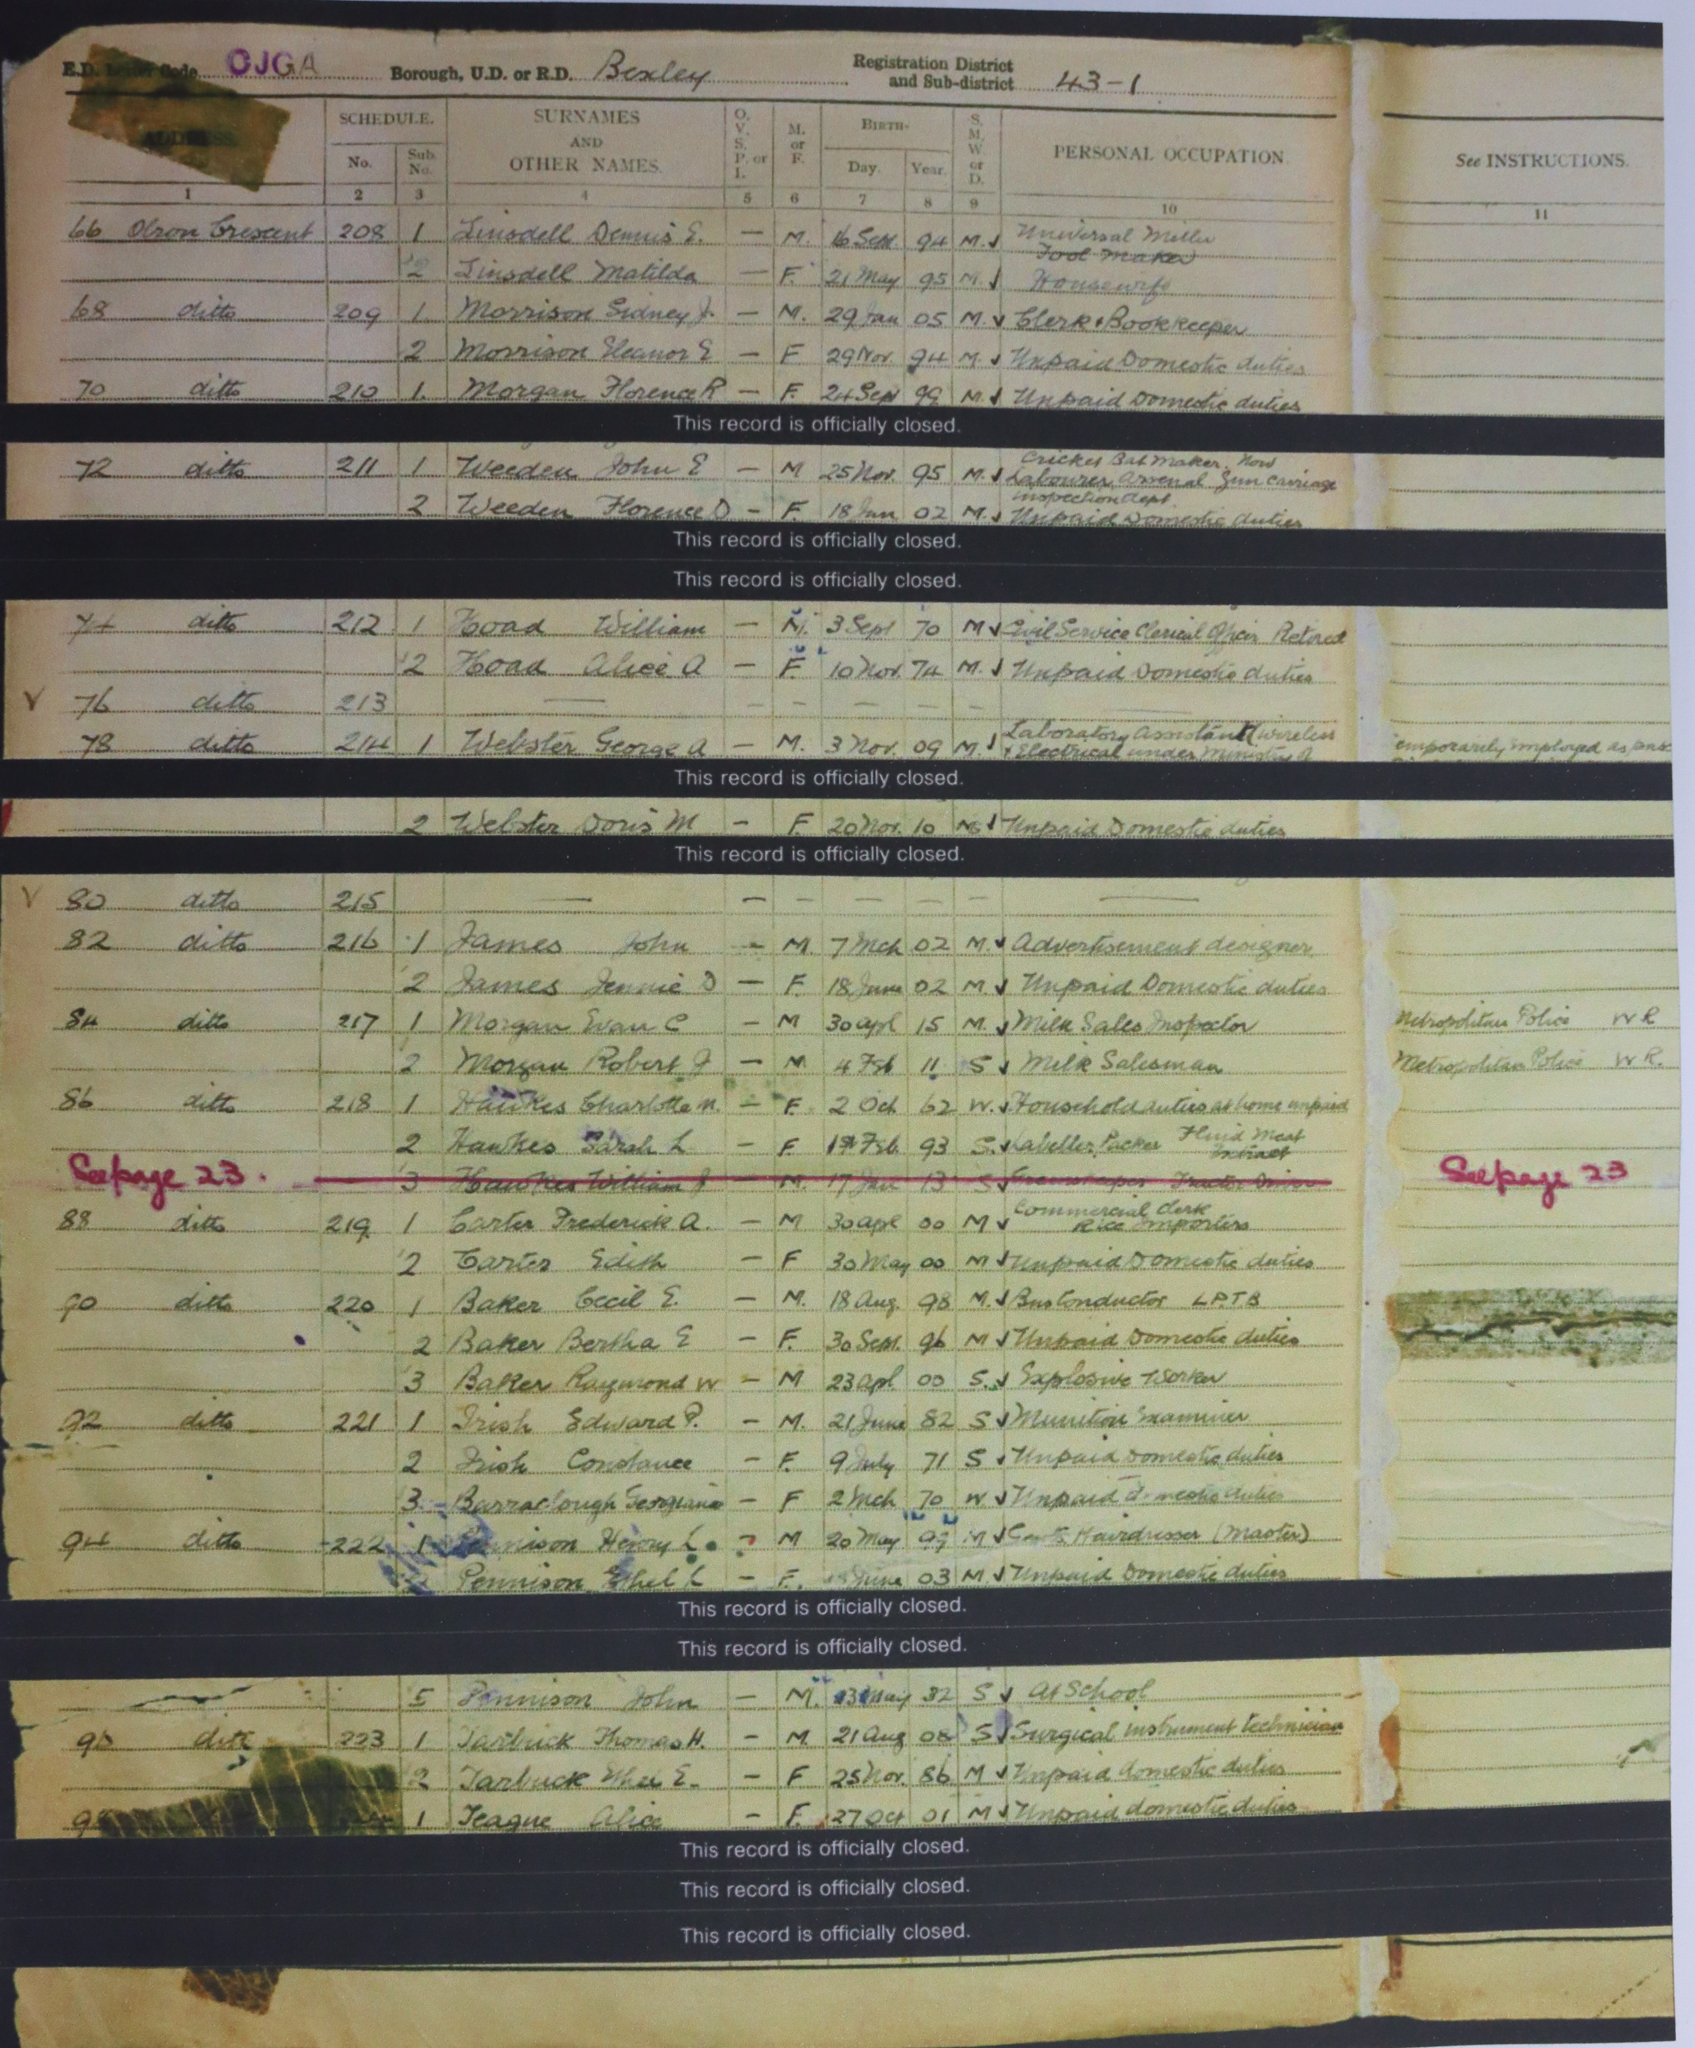 E.D. Letter Code OJGA Borough, U.D. or R.D. Bexley Registration District and Sub-district 43-1
ADDRESS. SCHEDULE. No. Sub. No. SURNAMES AND OTHER NAMES. O. V. S. P. or I. M. or F. BIRTH- Day. Year. S. M. W. or D. PERSONAL OCCUPATION. See INSTRUCTIONS.
1 2 3 4 5 6 7 8 9 10 11
66 Olron Crescent 208 1 Linsdell Dennis E. — M. 16 Sept 94 M. Universal Miller Tool Maker
2 Linsdell Matilda — F. 21 May 95 M. Housewife
68 ditto 209 1. Morrison Sidney J. — M. 29 Jan 05 M. Clerk & Bookkeeper
2 Morrison Eleanor E — F 29 Nov. 94 M. Unpaid Domestic duties
70 ditto 210 1. Morgan Florence R — F. 24 Sep 99 M. Unpaid Domestic duties
This record is officially closed.
72 ditto 211 1 Weeden John E — M 25 Nov. 95 M. Cricket Bat Maker. Now Labourer Arsenal Gun Carriage Inspection Dept
2 Weeden Florence D — F. 18 Jan 02 M. Unpaid Domestic duties
This record is officially closed.
This record is officially closed.
74 ditto 212 1 Hoad William — M. 3 Sept 70 M Civil Service Clerical Officer Retired
2 Hoad Alice A — F. 10 Nov. 74 M. Unpaid Domestic duties
V 76 ditto 213 — — — — — —
78 ditto 214 1 Webster George A — M. 3 Nov. 09 M. Laboratory Assistant (Wireless & Electrical under Ministry of emporarily employed as
This record is officially closed.
2 Webster Doris M — F. 20 Nov. 10 M. Unpaid Domestic duties
This record is officially closed.
V 80 ditto 215 — — — — — — —
82 ditto 216 1 James John — M. 7 Mch 02 M. Advertisement designer
2 James Jennie D — F. 18 June 02 M. Unpaid Domestic duties
84 ditto 217 1 Morgan Evan C — M 30 Apl 15 M. Milk Sales Inspector Metropolitan Police W R
2 Morgan Robert J — M. 4 Feb 11 S Milk Salesman Metropolitan Police W R.
86 ditto 218 1 Hawkes Charlotte M. — F. 2 Oct 62 W. Household duties at home unpaid
2 Hawkes Sarah L — F Feb. 93 S. Labeller, Packer Fluid Meat Extract
See page 23. 3 Hawkes William J — M. 17 13 S Tractor Driver See page 23
88 ditto 219 1 Carter Frederick A. — M 30 Apl 00 M Commercial Clerk Rice Importers
2 Carter Edith — F 30 May 00 M Unpaid Domestic duties
90 ditto 220 1 Baker Cecil E. — M. 18 Aug. 98 M. Bus Conductor L.P.T.B
2 Baker Bertha E — F. 30 Sept. 96 M Unpaid Domestic duties
3 Baker Raymond W — M 23 Apl. 00 S. Explosive Worker
92 ditto 221 1 Irish Edward P. — M. 21 June 82 S Munition Examiner
2 Irish Constance — F. 9 July 71 S Unpaid Domestic duties
3. Barraclough Georgiana — F 2 Mch 70 W Unpaid Domestic duties
94 ditto 222 1 Pennison Henry L. M 20 May M Gents Hairdresser (Master)
Pennison Ethel L — F. June 03 M. Unpaid Domestic duties
This record is officially closed.
This record is officially closed.
5 Pennison John — M. May 32 S At School
ditto 223 1 Tarbuck Thomas H. — M. 21 Aug 08 S Surgical instrument technician
2 Tarbuck E. — F 25 Nov. 86 M Unpaid domestic duties
1 Teague Alice — F. 27 Oct 01 M Unpaid domestic duties
This record is officially closed.
This record is officially closed.
This record is officially closed.